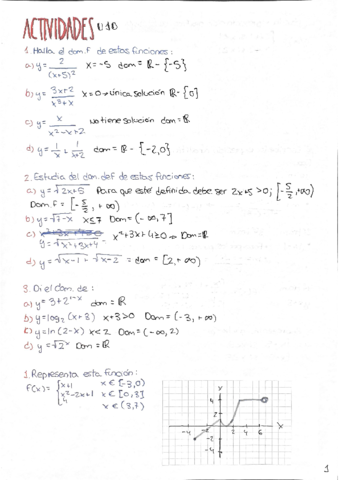 ACTIVIDADES U10
1. Halla el dom.f de estas funciones:
a) y = 2/(x+5)² x = -5 dom = ℝ - {-5}
b) y = 3x+2/x³+x x=0 → única solución ℝ - {0}
c) y = x/x²-x+2 no tiene solución dom = ℝ
d) y = 1/x + 1/x+2 dom = ℝ - {-2,0}
2. Estudia el dom.def de estas funciones:
a) y = √2x+5 Para que esté definida debe ser 2x+5 > 0; [-5/2, +∞)
Dom.f = [-5/2, +∞)
b) y = √7-x x≤7 Dom = (-∞, 7]
c) y = √x²+3x+4 x²+3x+4 ≥ 0 → Dom = ℝ
d) y = √x-1 + √x-2 = dom = [2, +∞)
3. Di el dom. de:
a) y = 3+2^1-x dom = ℝ
b) y = log₂ (x+3) x+3>0 Dom = (-3, +∞)
c) y = ln (2-x) x<2 Dom = (-∞, 2)
d) y = √2ˣ Dom = ℝ
1. Representa esta función:
f(x) = { x+1 x ∈ [-3,0)
x²-2x+1 x ∈ [0,3]
4 x ∈ (3,7)
Y
4
2
-4 -2 2 4 6 X
-2
-4
1